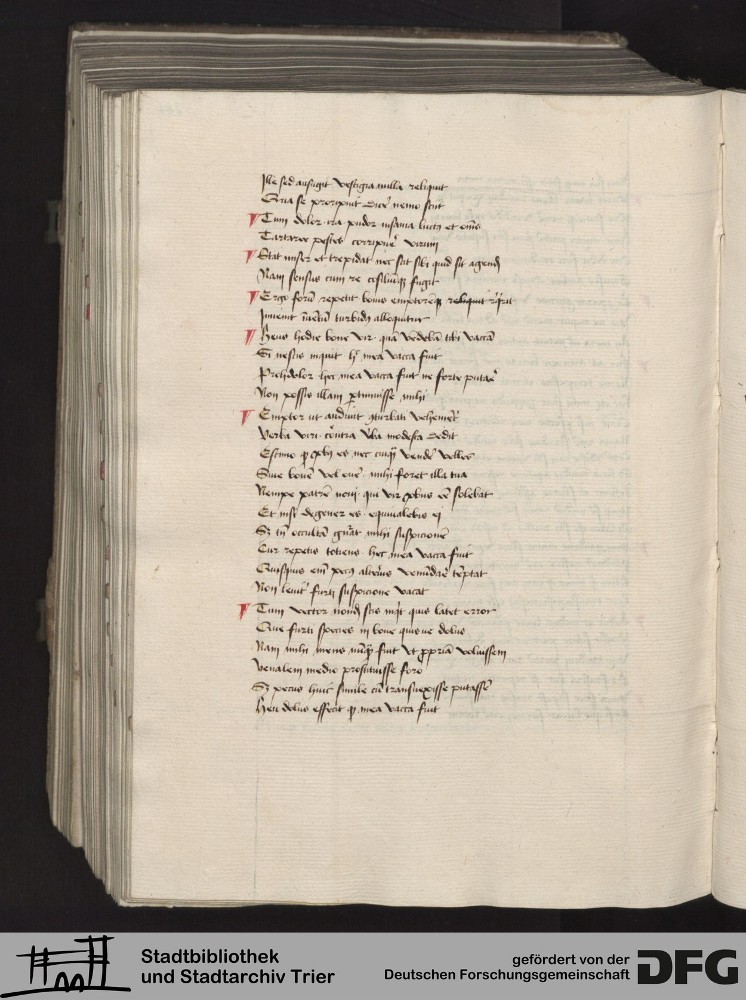 Ille sed aufugit vestigia nulla reliquit
se proripuit quē nemo scit
Tum dolor ira pudor insania luctꝰ et om̄s
Tartaree pestes corripuē virum
Stat miser et trepidat nec scit sibi quid sit agend
Nam sensus cum re cōsiliūqꝫ fugit
Ergo forū repetit bouis emptorēqꝫ reliquit
Inuenit turbidꝰ alloquitur
Heus hodie bone vir quā vēdebā tibi vaccā
Si nescis inquit hec mea vacca fuit
Prohdolor hec mea vacca fuit ne forte putas
Non possis illam ꝑtinuisse mihi
Emptor ut audiuit ꝯturbati vehemēt
Verba viri contra v̄ba modesta dedit
Estimo es nec cuiqꝫ vendē velles
Siue bouē vel ouē mihi foret illa tua
Nempe patrē noui qui vir ꝓbus eē solebat
Et nisi degener es equiualebis ei
Sꝫ tn̄ occultā gn̄at mihi suspicionē
Cur repetis totiens hec mea vacca fuit
Quisquis em̄ pecꝰ alteriꝰ venūdare tēptat
Non leuit furti suspicione vacat
Tum vector nond scis inqͥt quis latet error
Que furti species in boue quisue dolus
Nam mihi mens nūqꝫ fuit vt ꝓpriā voluissem
Venalem medio prostituisse foro
Sꝫ pecus huic simile cū transuexisse putassē
Heu dolus effecit qͦ mea vacca fuit
Stadtbibliothek
und Stadtarchiv Trier
gefördert von der
Deutschen Forschungsgemeinschaft
DFG